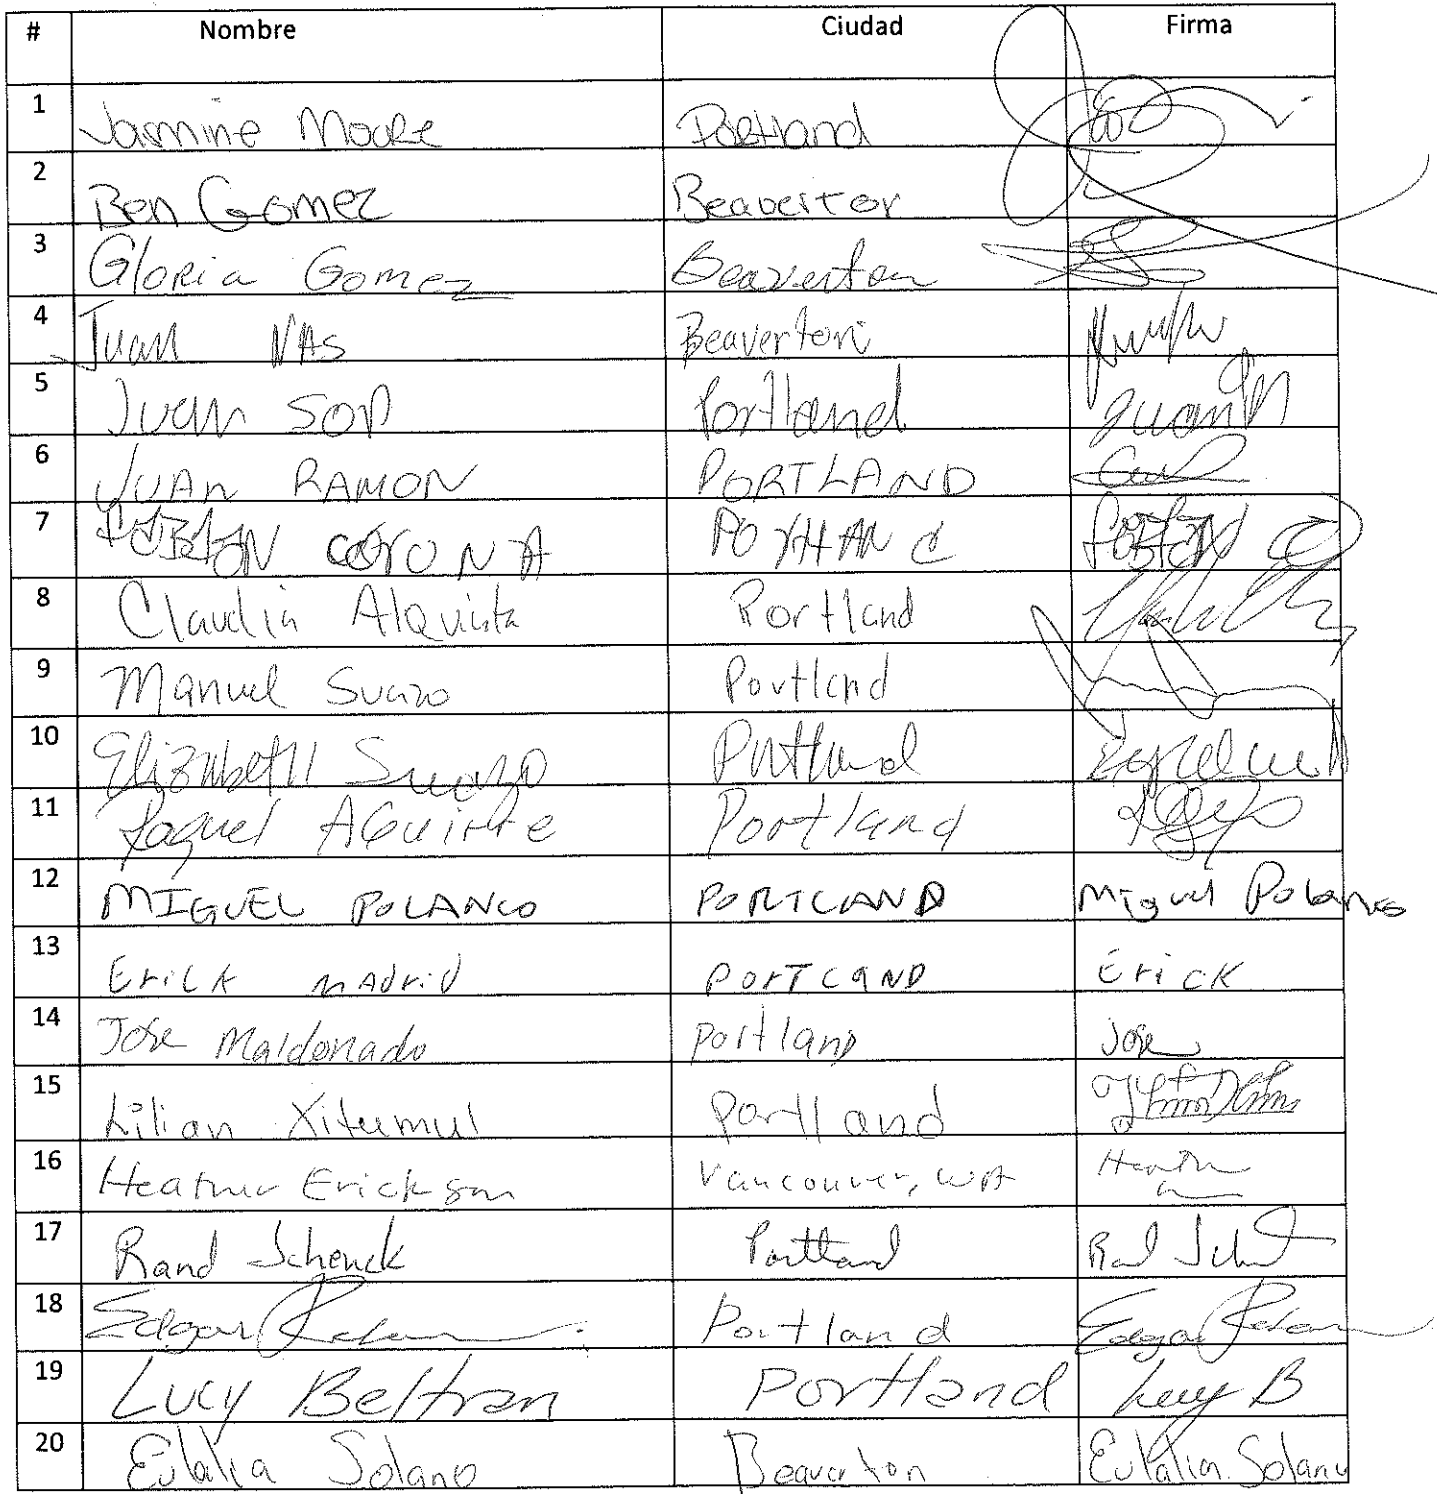 # Nombre Ciudad Firma
1 Jasmine Moore Portland
2 Ben Gomez Beaverton
3 Gloria Gomez Beaverton
4 Juan Beaverton
5 Juan Portland Juan
6 Juan RAMON PORTLAND
7 CORONA
8 Claudia Portland
9 Manuel Suazo Portland
10 Elizabeth Suazo Portland
11 Raquel AGuirre Portland
12 MIGUEL POLANCO PORTLAND Miguel Polanco
13 Erick madrid PORTLAND Erick
14 Jose Maldonado portland Jose
15 Lilian Xitumul Portland
16 Heather Erickson Vancouver, WA
17 Rand Schenck Portland
18 Edgar Portland Edgar
19 Lucy Beltran Portland Lucy B
20 Eulalia Solano Beaverton Eulalia Solano